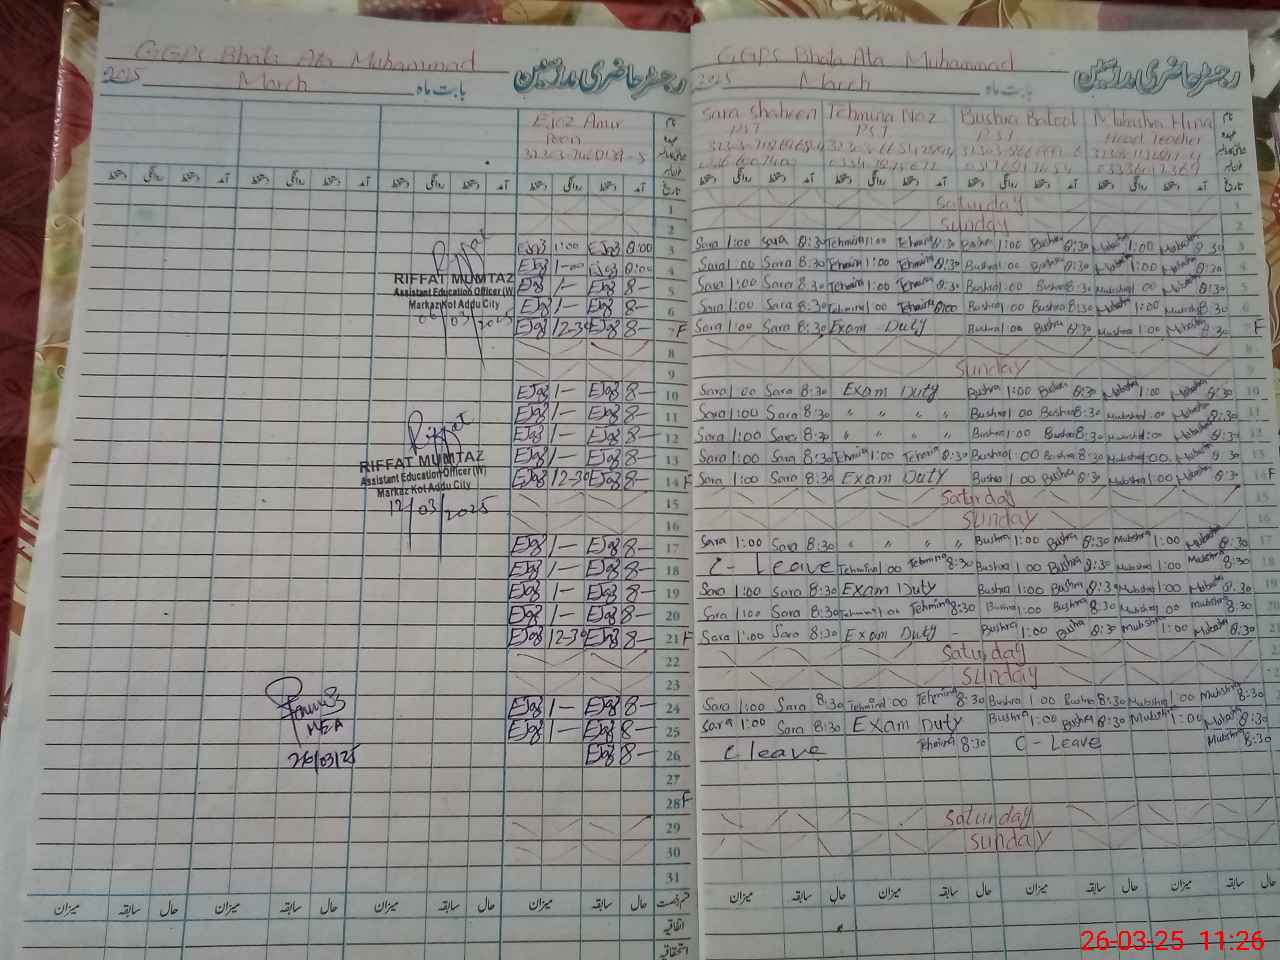 GGPS Bhati Ata Muhammad
رجسٹر حاضری مدرسین
2025 March بابت ماہ
Ejaz Amir
Peon
آمد
روانگی
1
2
Ejaz 1:00 Ejaz 8:00 3
Ejaz 1-00 Ejaz 8:00 4
Ejaz 1- Ejaz 8- 5
Ejaz 1- Ejaz 8- 6
Ejaz 12-30 Ejaz 8- 7 F
8
9
Ejaz 1- Ejaz 8- 10
Ejaz 1- Ejaz 8- 11
Ejaz 1- Ejaz 8- 12
Ejaz 1- Ejaz 8- 13
Ejaz 12-30 Ejaz 8- 14 F
15
16
Ejaz 1- Ejaz 8- 17
Ejaz 1- Ejaz 8- 18
Ejaz 1- Ejaz 8- 19
Ejaz 1- Ejaz 8- 20
Ejaz 12-30 Ejaz 8- 21 F
22
23
Ejaz 1- Ejaz 8- 24
Ejaz 1- Ejaz 8- 25
Ejaz 8- 26
27
28 F
29
30
31
میزان سابقہ حال میزان سابقہ حال میزان سابقہ حال میزان سابقہ حال
اتفاقیہ
استحقاقیہ
Riffat
RIFFAT MUMTAZ
Assistant Education Officer (W)
Markaz Kot Addu City
06/03/2025
Riffat
RIFFAT MUMTAZ
Assistant Education Officer (W)
Markaz Kot Addu City
12/03/2025
MEA
26/03/25
GGPS Bhati Ata Muhammad
رجسٹر حاضری مدرسین
2025 March بابت ماہ
Sara Shaheen Tehmina Naz Bushra Batool Mubashra Hina
PST PST PST Head Teacher
Saturday 1
Sunday 2
Sara 1:00 Sara 8:30 Tehmina 1:00 Tehmina 8:30 Bushra 1:00 Bushra 8:30 Mubashra 1:00 Mubashra 8:30 3
Sara 1:00 Sara 8:30 Tehmina 1:00 Tehmina 8:30 Bushra 1:00 Bushra 8:30 Mubashra 1:00 Mubashra 8:30 4
Sara 1:00 Sara 8:30 Tehmina 1:00 Tehmina 8:30 Bushra 1:00 Bushra 8:30 Mubashra 1:00 Mubashra 8:30 5
Sara 1:00 Sara 8:30 Tehmina 1:00 Tehmina 8:00 Bushra 1:00 Bushra 8:30 Mubashra 1:00 Mubashra 8:30 6
Sara 1:00 Sara 8:30 Exam Duty Bushra 1:00 Bushra 8:30 Mubashra 1:00 Mubashra 8:30 7 F
8
Sunday 9
Sara 1:00 Sara 8:30 Exam Duty Bushra 1:00 Bushra 8:30 Mubashra 1:00 Mubashra 8:30 10
Sara 1:00 Sara 8:30 " " " " Bushra 1:00 Bushra 8:30 Mubashra 1:00 Mubashra 8:30 11
Sara 1:00 Sara 8:30 " " " " Bushra 1:00 Bushra 8:30 Mubashra 1:00 Mubashra 8:30 12
Sara 1:00 Sara 8:30 Tehmina 1:00 Tehmina 8:30 Bushra 1:00 Bushra 8:30 Mubashra 1:00 Mubashra 8:30 13
Sara 1:00 Sara 8:30 Exam Duty Bushra 1:00 Bushra 8:30 Mubashra 1:00 Mubashra 8:30 14 F
Saturday 15
Sunday 16
Sara 1:00 Sara 8:30 " " " " Bushra 1:00 Bushra 8:30 Mubashra 1:00 Mubashra 8:30 17
C- Leave Tehmina 1:00 Tehmina 8:30 Bushra 1:00 Bushra 8:30 Mubashra 1:00 Mubashra 8:30 18
Sara 1:00 Sara 8:30 Exam Duty Bushra 1:00 Bushra 8:30 Mubashra 1:00 Mubashra 8:30 19
Sara 1:00 Sara 8:30 Tehmina 1:00 Tehmina 8:30 Bushra 1:00 Bushra 8:30 Mubashra 1:00 Mubashra 8:30
Sara 1:00 Sara 8:30 Exam Duty - Bushra 1:00 Bushra 8:30 Mubashra 1:00 Mubashra 8:30
Saturday
Sunday
Sara 1:00 Sara 8:30 Tehmina 1:00 Tehmina 8:30 Bushra 1:00 Bushra 8:30 Mubashra 1:00 Mubashra 8:30
Sara 1:00 Sara 8:30 Exam Duty Bushra 1:00 Bushra 8:30 Mubashra 1:00 Mubashra 8:30
C leave Tehmina 8:30 C - Leave Mubashra 8:30
Saturday
Sunday
میزان سابقہ حال میزان سابقہ حال میزان سابقہ حال میزان سابقہ حال
26-03-25 11:26